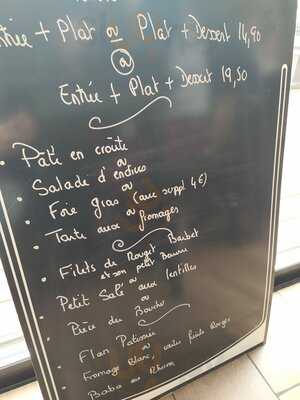 Entrée + Plat ou Plat + Dessert 14,90
ou
Entrée + Plat + Dessert 19,50
• Pâté en croûte
ou
• Salade d'endives
ou
• Foie gras (avec suppl 4€)
ou
• Tarte aux fromages
• Filets de Rouget Barbet
et son petit Beurre
ou
• Petit Salé aux lentilles
ou
• Pièce du Boucher
• Flan Patissier
ou
• Fromage Blanc, coulis fruits Rouges
ou
• Baba au Rhum